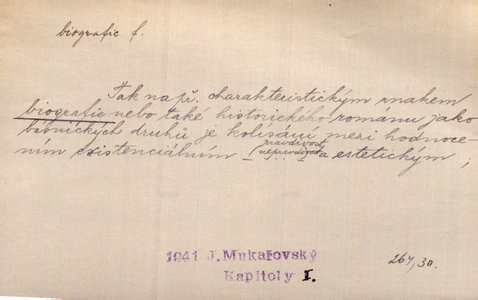 biografie f.
Tak na př. charakteristickým znakem
biografie nebo také historického románu jako
básnických druhů je kolísání mezi hodnoce-
ním existenciálním (pravdivost
nepravdivost) a estetickým ;
1941 J. Mukařovský
Kapitoly I.
264,30.